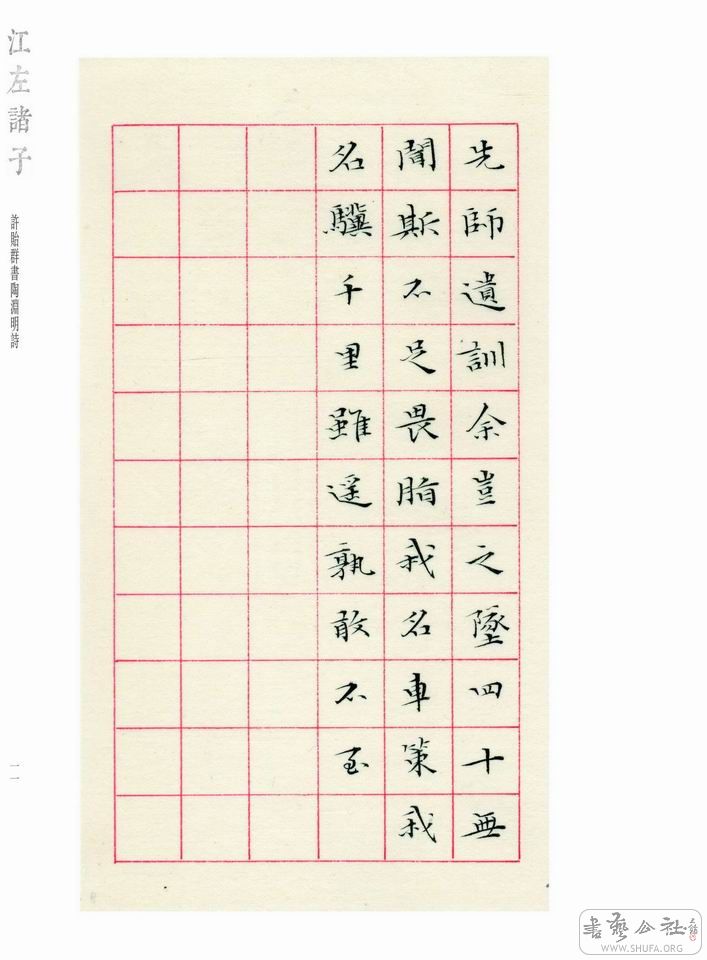 先師遺訓余豈之墜四十無
聞斯不足畏脂我名車策我
名驥千里雖遥孰敢不至
江左諸子
許貽群書陶淵明詩
一一
書藝公社
WWW.SHUFA.ORG